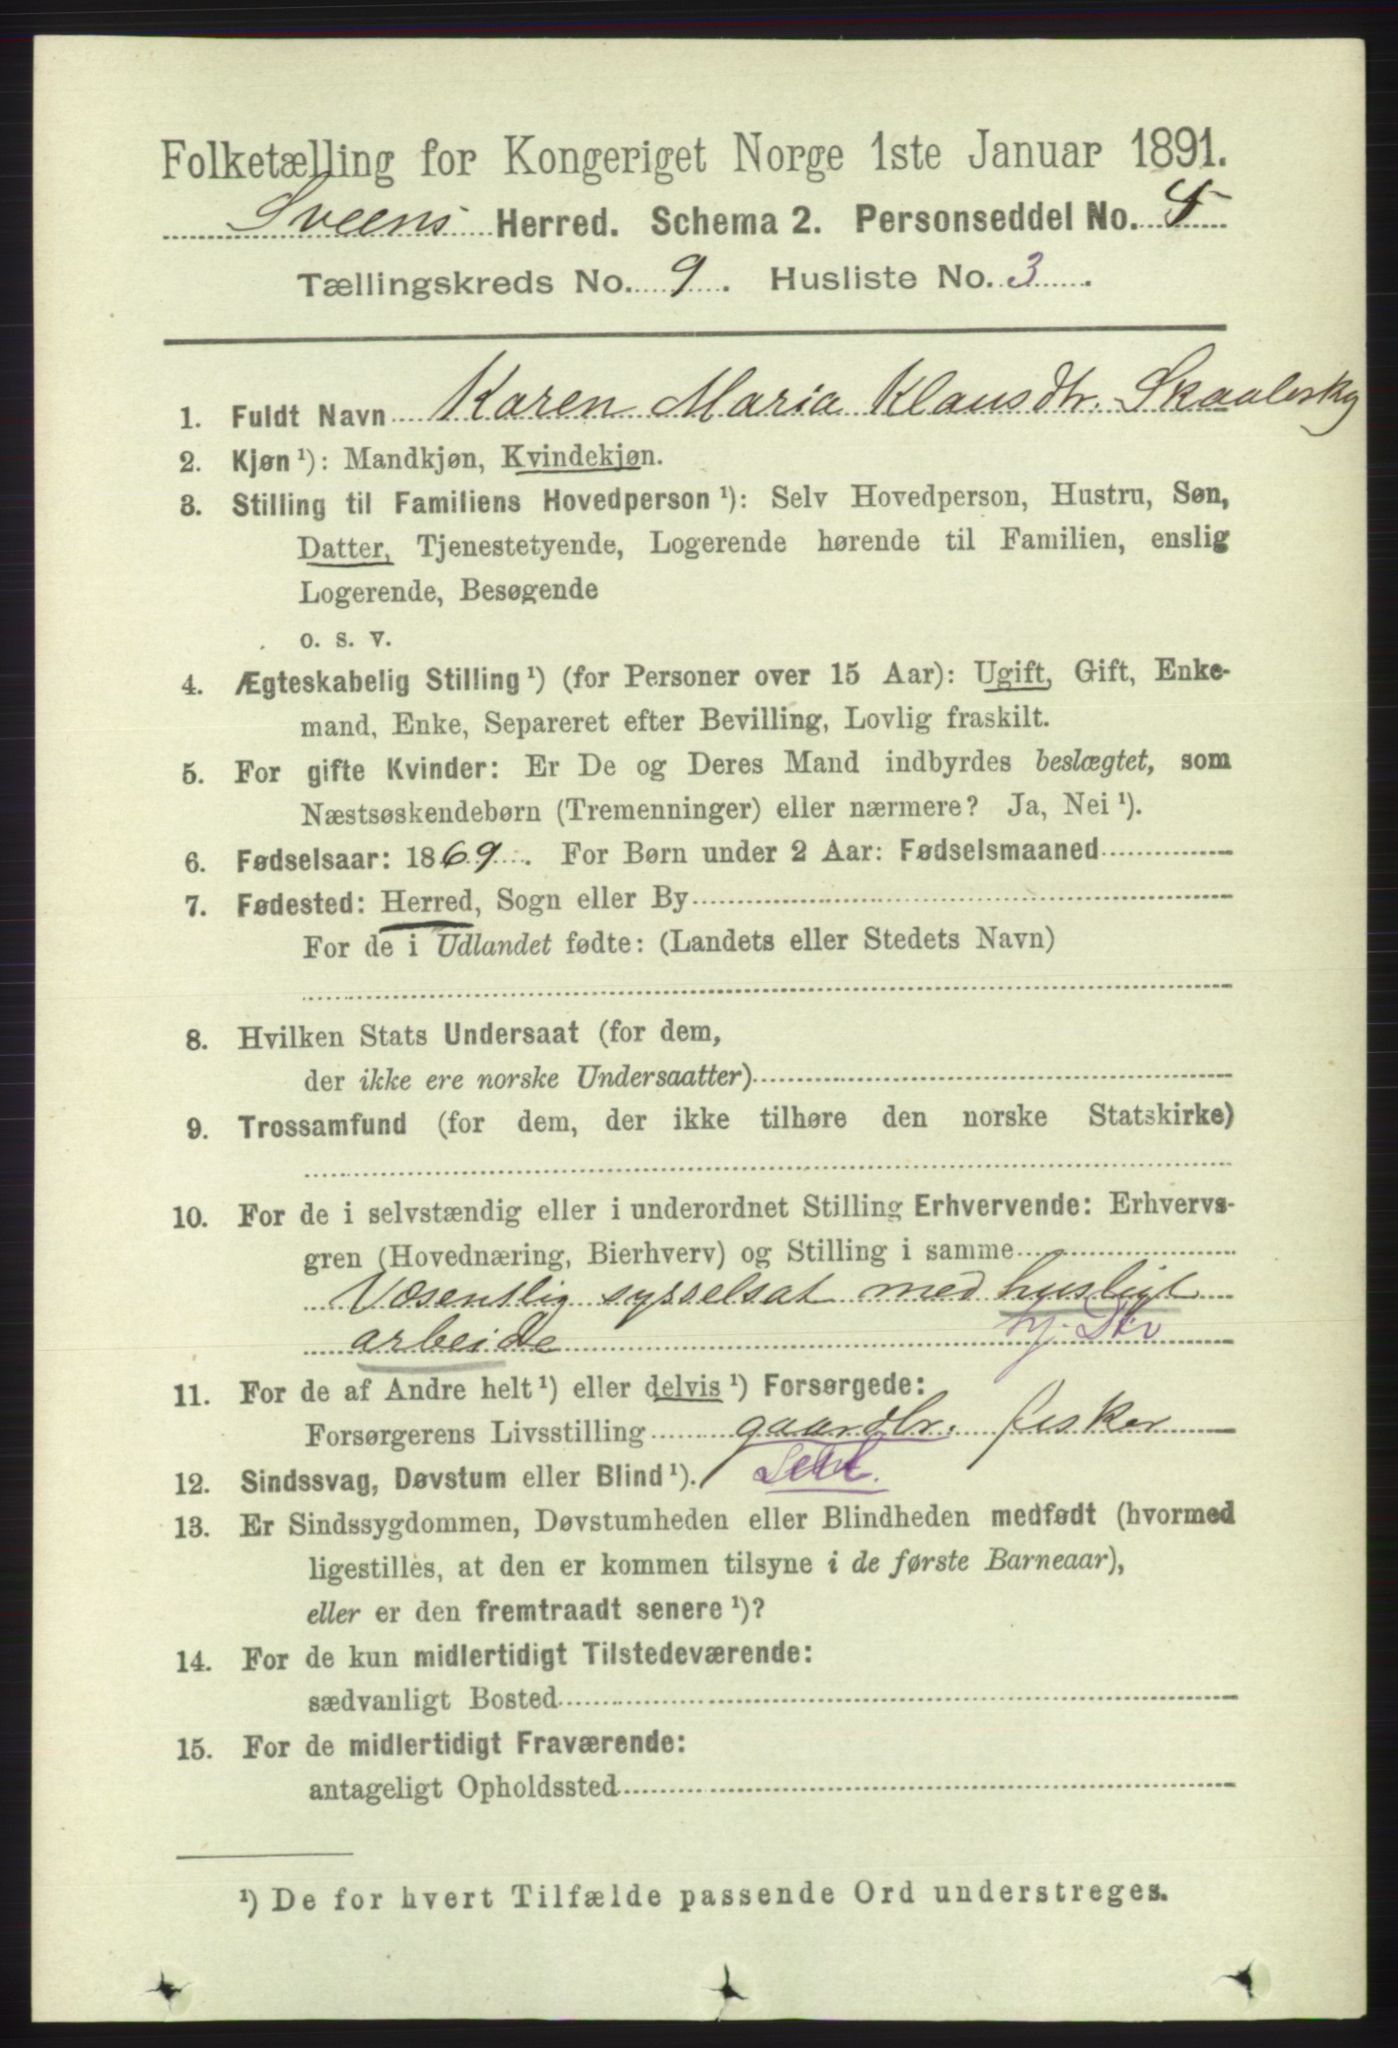 Folketælling for Kongeriget Norge 1ste Januar 1891.
Sveens Herred. Schema 2. Personseddel No.
Tællingskreds No. 9. Husliste No. 3.
1. Fuldt Navn Karen Maria Klausdtr. Skaalesky
2. Kjøn ¹): Mandkjøn, Kvindekjøn.
3. Stilling til Familiens Hovedperson ¹): Selv Hovedperson, Hustru, Søn,
Datter, Tjenestetyende, Logerende hørende til Familien, enslig
Logerende, Besøgende
o. s. v.
4. Ægteskabelig Stilling ¹) (for Personer over 15 Aar): Ugift, Gift, Enke-
mand, Enke, Separeret efter Bevilling, Lovlig fraskilt.
5. For gifte Kvinder: Er De og Deres Mand indbyrdes beslægtet, som
Næstsøskendebørn (Tremenninger) eller nærmere? Ja, Nei ¹).
6. Fødselsaar: 1869. For Børn under 2 Aar: Fødselsmaaned
7. Fødested: Herred, Sogn eller By
For de i Udlandet fødte: (Landets eller Stedets Navn)
8. Hvilken Stats Undersaat (for dem,
der ikke ere norske Undersaatter)
9. Trossamfund (for dem, der ikke tilhøre den norske Statskirke)
10. For de i selvstændig eller i underordnet Stilling Erhvervende: Erhvervs-
gren (Hovednæring, Bierhverv) og Stilling i samme
Væsentlig sysselsat med husligt
arbeide
11. For de af Andre helt ¹) eller delvis ¹) Forsørgede:
Forsørgerens Livsstilling gaardbr. fisker
12. Sindssvag, Døvstum eller Blind ¹).
13. Er Sindssygdommen, Døvstumheden eller Blindheden medfødt (hvormed
ligestilles, at den er kommen tilsyne i de første Barneaar),
eller er den fremtraadt senere ¹)?
14. For de kun midlertidigt Tilstedeværende:
sædvanligt Bosted
15. For de midlertidigt Fraværende:
antageligt Opholdssted
¹) De for hvert Tilfælde passende Ord understreges.